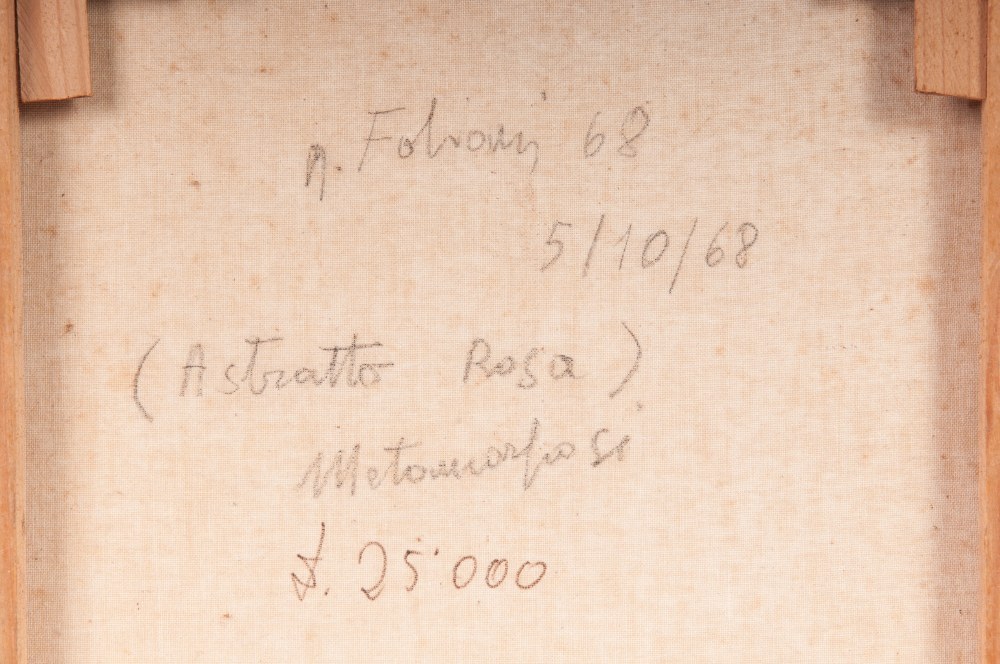 68
5/10/68
(Astratto Rosa)
Metamorfosi
£. 25'000